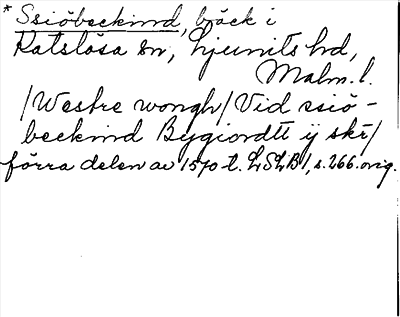 * Ssiöbeckind, bäck i
Katslösa sn, Ljunits hd,
Malm. l.
/Westre wongh/ Vid ssiö-
beckind Bygiordtt ij skr/
förra delen av 1570-t. LSLB 1, s. 266. orig.